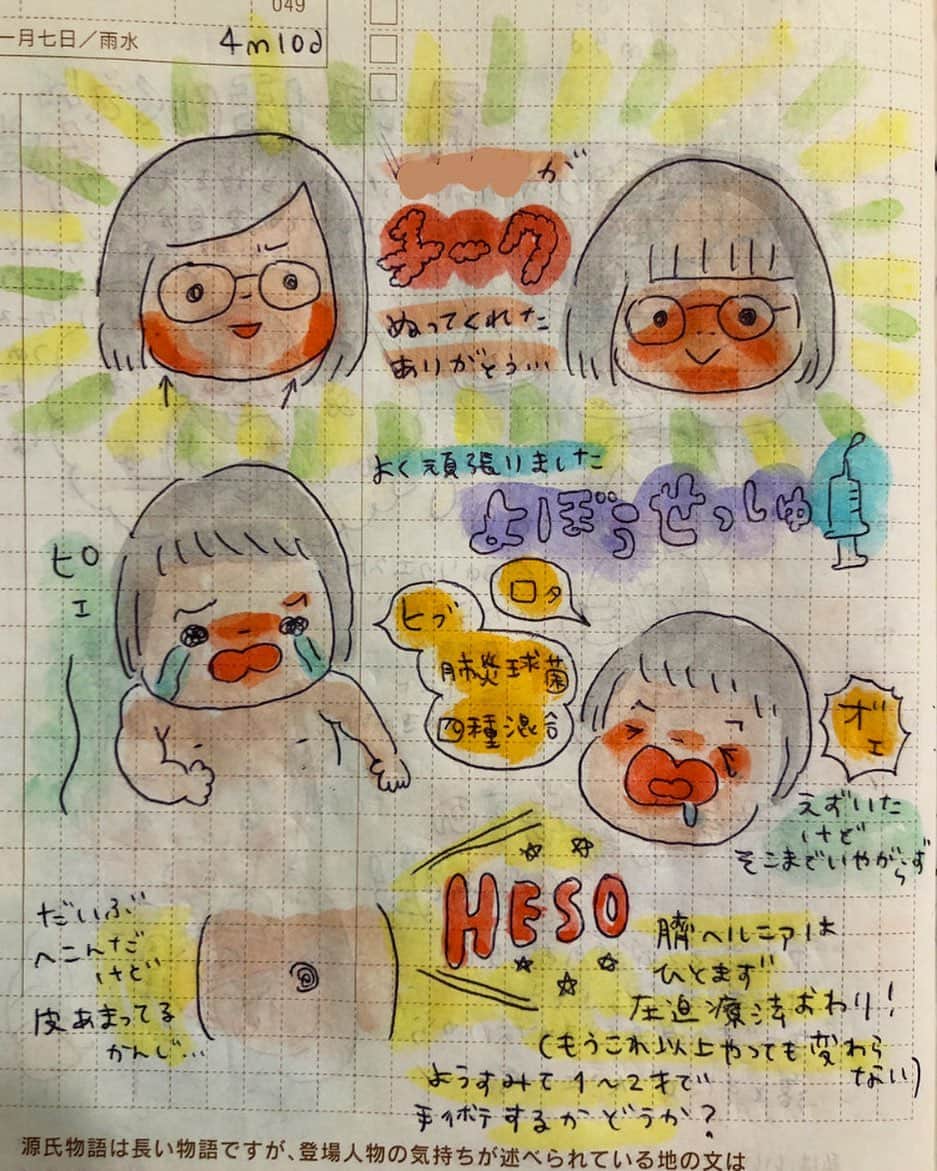 049
一月七日／雨水
4m10d
が
チーク
ぬってくれた
ありがとう…
よく頑張りました
よぼうせっしゅ
ピエ
ロタ
ヒブ
肺炎球菌
四種混合
オエ
えずいた
けど
そこまでいやがらず
HESO
だいぶ
へこんだ
けど
皮あまってる
かんじ…
臍ヘルニアは
ひとまず
圧迫療法おわり!
(もうこれ以上やっても変わらない)
ようすみて1〜2才で
オペするかどうか?
源氏物語は長い物語ですが、登場人物の気持ちが述べられている地の文は